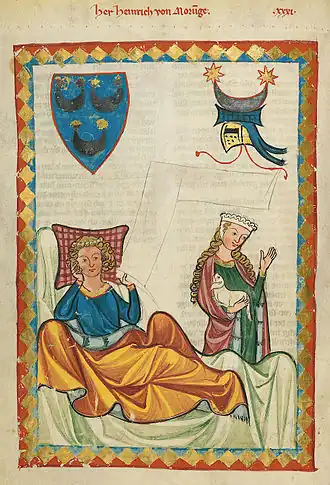 Her Heinrich von Morunge. xxxi.